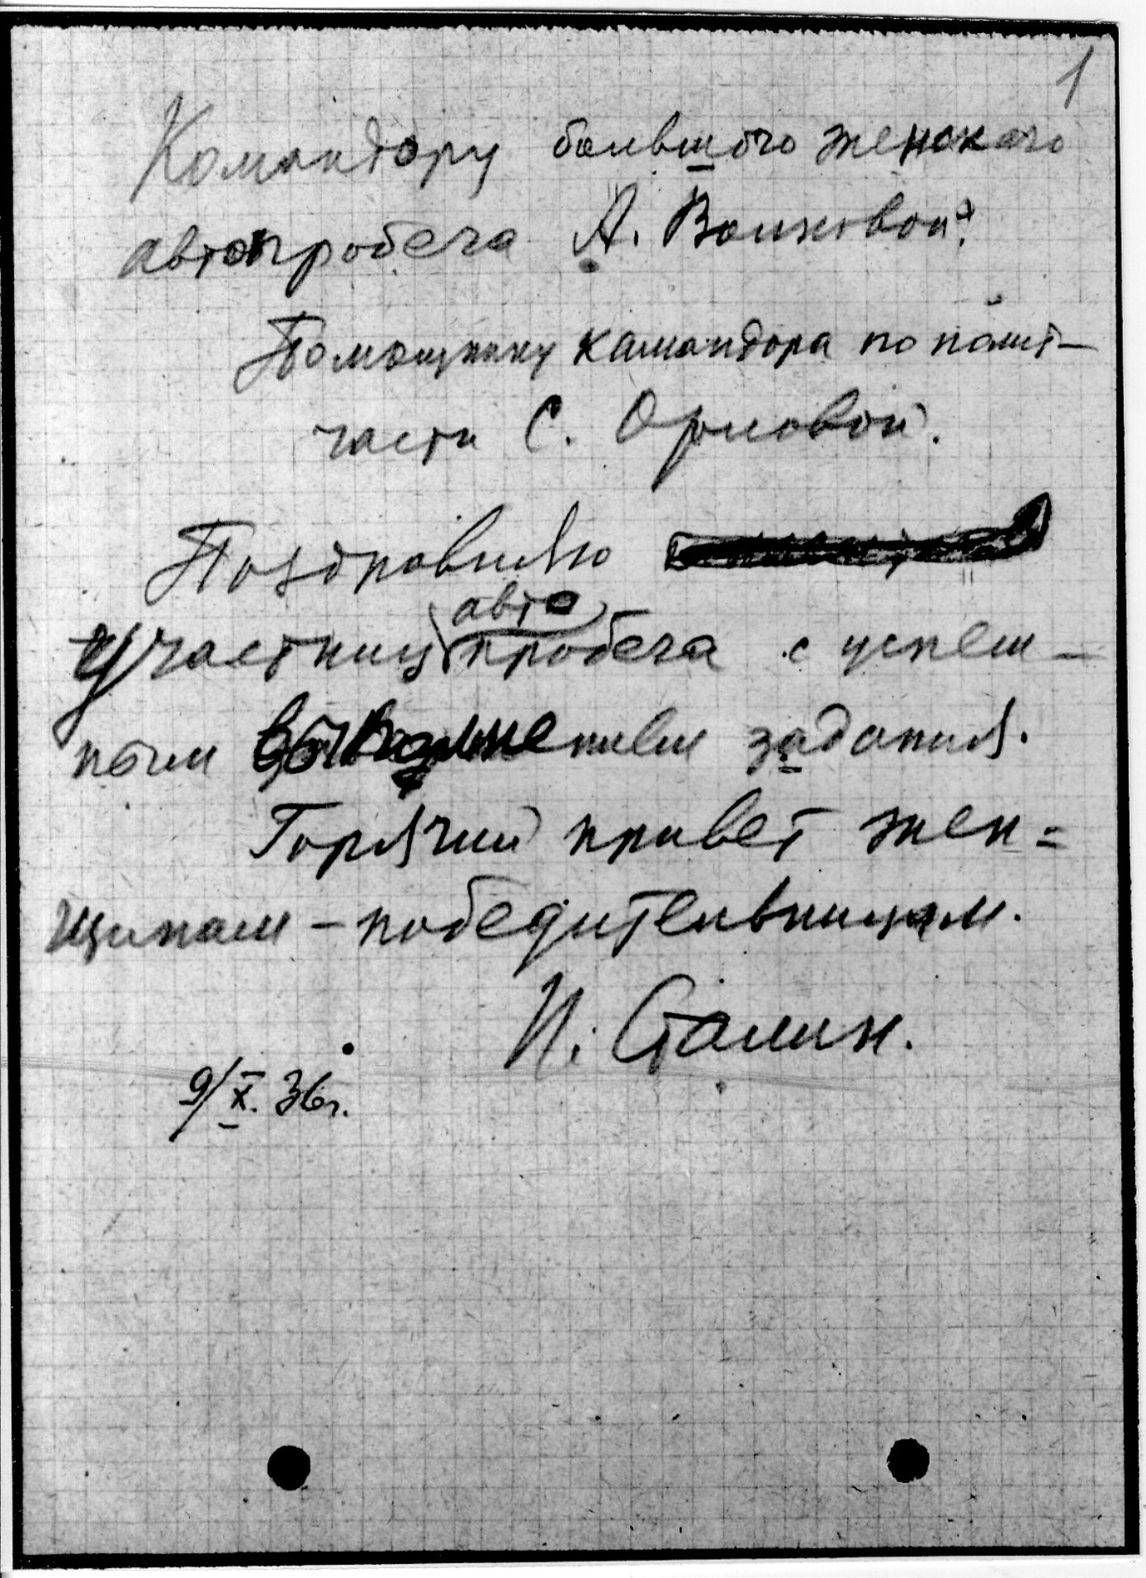 1
Командору большого женского
автопробега А. Волковой.
Помощнику командора по полит-
части С. Орловой.
Поздравляю
авто
участниц пробега с успеш-
ным выполнением задания.
Горячий привет жен=
щинам – победительницам.
И. Сталин.
9/X. 36г.